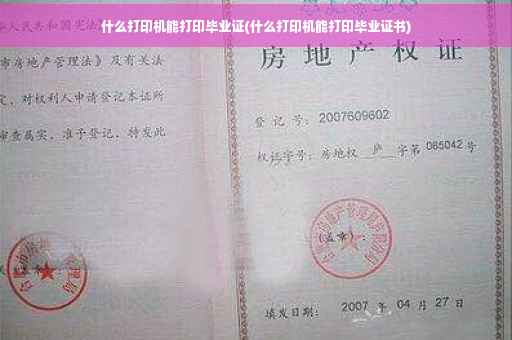 什么打印机能打印毕业证(什么打印机能打印毕业证书)
人民共和国宪法
市房地产管理法》及有关法
定，对权利人申请登记本证所
审查属实，准予登记，特发此
房地产权证
登记号：2007609602
权证字号：房地权 庐 字第 065042 号
(盖章)：
房地产管理局
填发日期：2007 年 04 月 27 日